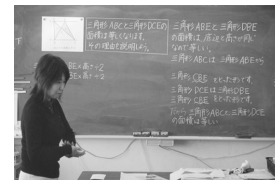 三角形ABCと三角形DCEの
面積は等しくなります。
その理由を説明しよう。
三角形ABEと三角形DBE
の面積は、底辺と高さが同じ
なので等しい。
三角形ABCは三角形ABEから
三角形CBEをとったもので
三角形DCEは三角形DBE
三角形CBEをとったもの。
だから三角形ABCと三角形DCE
の面積は等しい。
BE×高さ÷2
BE×高さ÷2